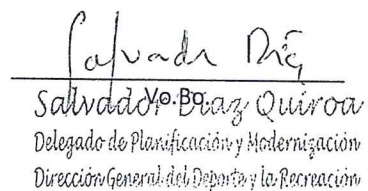 Salvador Díaz
Vo.Bo.
Salvador Díaz Quiroa
Delegado de Planificación y Modernización
Dirección General del Deporte y la Recreación